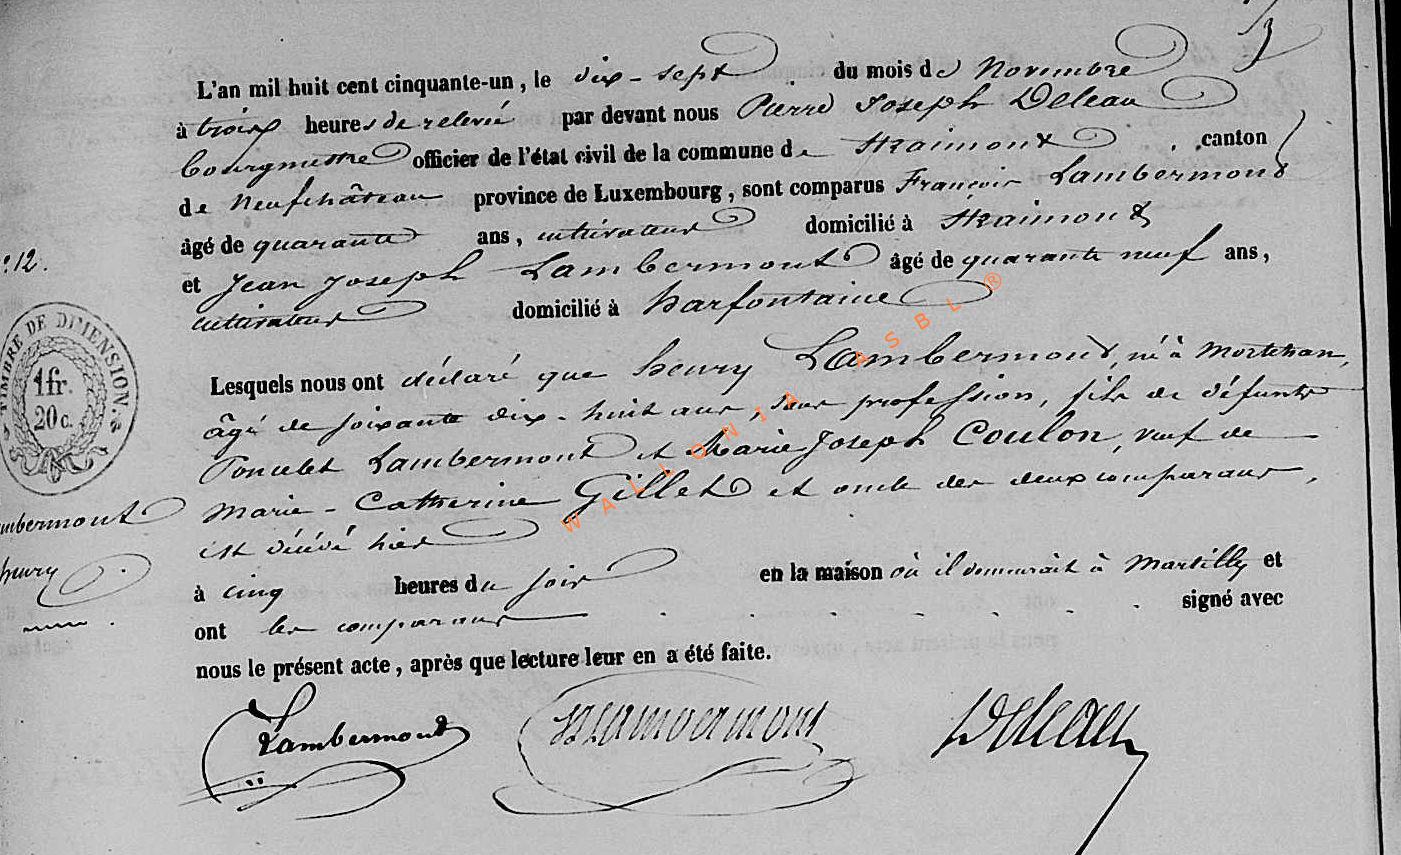 3
L'an mil huit cent cinquante-un, le dix-sept du mois de Novembre
à trois heures de relevée par devant nous Pierre Joseph Deleau
bourgmestre officier de l'état civil de la commune de Straimont canton
de Neufchâteau province de Luxembourg, sont comparus François Lambermont
âgé de quarante ans, cultivateur domicilié à Straimont
et Jean Joseph Lambermont âgé de quarante neuf ans,
cultivateur domicilié à harfontaine
Lesquels nous ont déclaré que henry Lambermont, né à Mortehan,
âgé de soixante dix-huit ans, sans profession, fils de défunts
Poncelet Lambermont et Marie Joseph Coulon, veuf de
Marie-Catherine Gillet et oncle des deux comparans,
est décédé hier
à cinq heures du soir en la maison où il demeurait à Martilly et
ont les comparans signé avec
nous le présent acte, après que lecture leur en a été faite.
Lambermont Lambermont Deleau
n° 12.
TIMBRE DE DIMENSION.
1 fr.
20 c.
ambermont
henry
WALLONIA ASBL ®